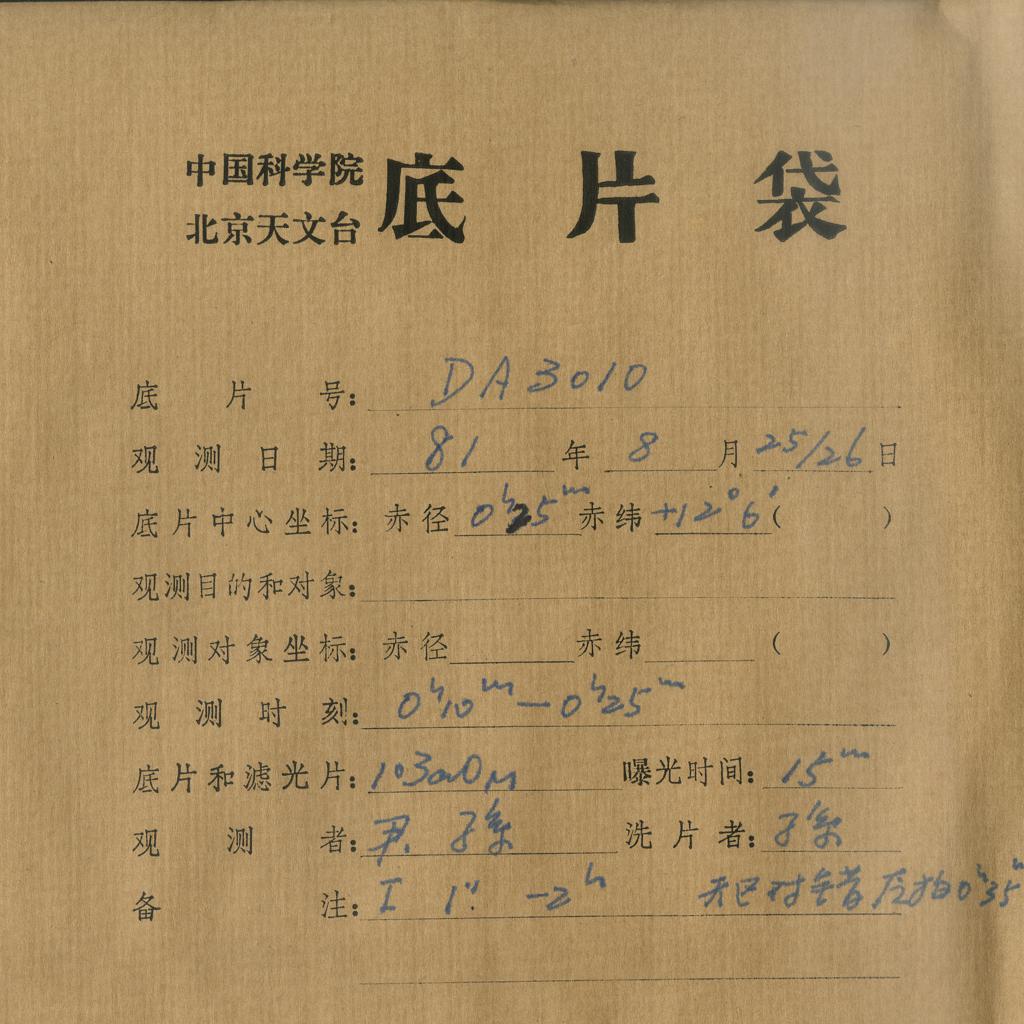 中国科学院
北京天文台
底片袋
底片号: DA3010
观测日期: 81年8月25/26日
底片中心坐标: 赤径 0ʰ25ᵐ 赤纬 +12°6′( )
观测目的和对象:
观测对象坐标: 赤径 赤纬 ( )
观测时刻: 0ʰ10ᵐ—0ʰ25ᵐ
底片和滤光片: 103aO 曝光时间: 15ᵐ
观测者: 尹.
洗片者:
备注: I 1″. -2ʰ 天区对错 应拍0ʰ35ᵐ